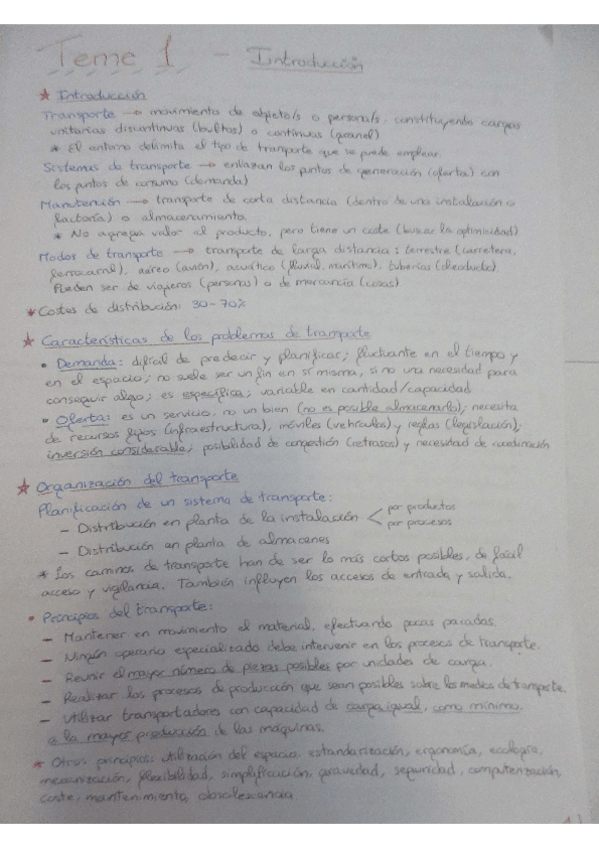 Tema 1 - Introducción
* Introducción
Transporte → movimiento de objeto/s o persona/s, constituyendo cargas
unitarias discontinuas (bultos) o continuas (granel)
* El entorno delimita el tipo de transporte que se puede emplear.
Sistemas de transporte → enlazan los puntos de generación (oferta) con
los puntos de consumo (demanda)
Manutención → transporte de corta distancia (dentro de una instalación o
factoría) o almacenamiento.
* No agrega valor al producto, pero tiene un coste (buscar la optimicidad)
Modos de transporte → transporte de larga distancia: terrestre (carretera,
ferrocarril), aéreo (avión), acuático (fluvial, marítimo), tuberías (oleoducto).
Pueden ser de viajeros (personas) o de mercancía (cosas).
* Costes de distribución: 30-70%
* Características de los problemas de transporte
• Demanda: difícil de predecir y planificar; fluctuante en el tiempo y
en el espacio; no suele ser un fin en sí misma, si no una necesidad para
conseguir algo; es específica; variable en cantidad/capacidad
• Oferta: es un servicio, no un bien (no es posible almacenarlo); necesita
de recursos fijos (infraestructura), móviles (vehículos) y reglas (legislación);
inversión considerable; posibilidad de congestión (retrasos) y necesidad de coordinación
* Organización del transporte
Planificación de un sistema de transporte:
- Distribución en planta de la instalación < por productos
por procesos
- Distribución en planta de almacenes
* Los caminos de transporte han de ser lo más cortos posibles, de fácil
acceso y vigilancia. También influyen los accesos de entrada y salida.
• Principios del transporte:
- Mantener en movimiento el material, efectuando pocas paradas
- Ningún operario especializado debe intervenir en los procesos de transporte.
- Reunir el mayor número de piezas posibles por unidades de carga.
- Realizar los procesos de producción que sean posibles sobre los medios de transporte.
- Utilizar transportadores con capacidad de carga igual, como mínimo,
a la mayor producción de las máquinas.
* Otros principios: utilización del espacio, estandarización, ergonomía, ecología,
mecanización, flexibilidad, simplificación, gravedad, seguridad, computerización,
coste, mantenimiento, obsolescencia